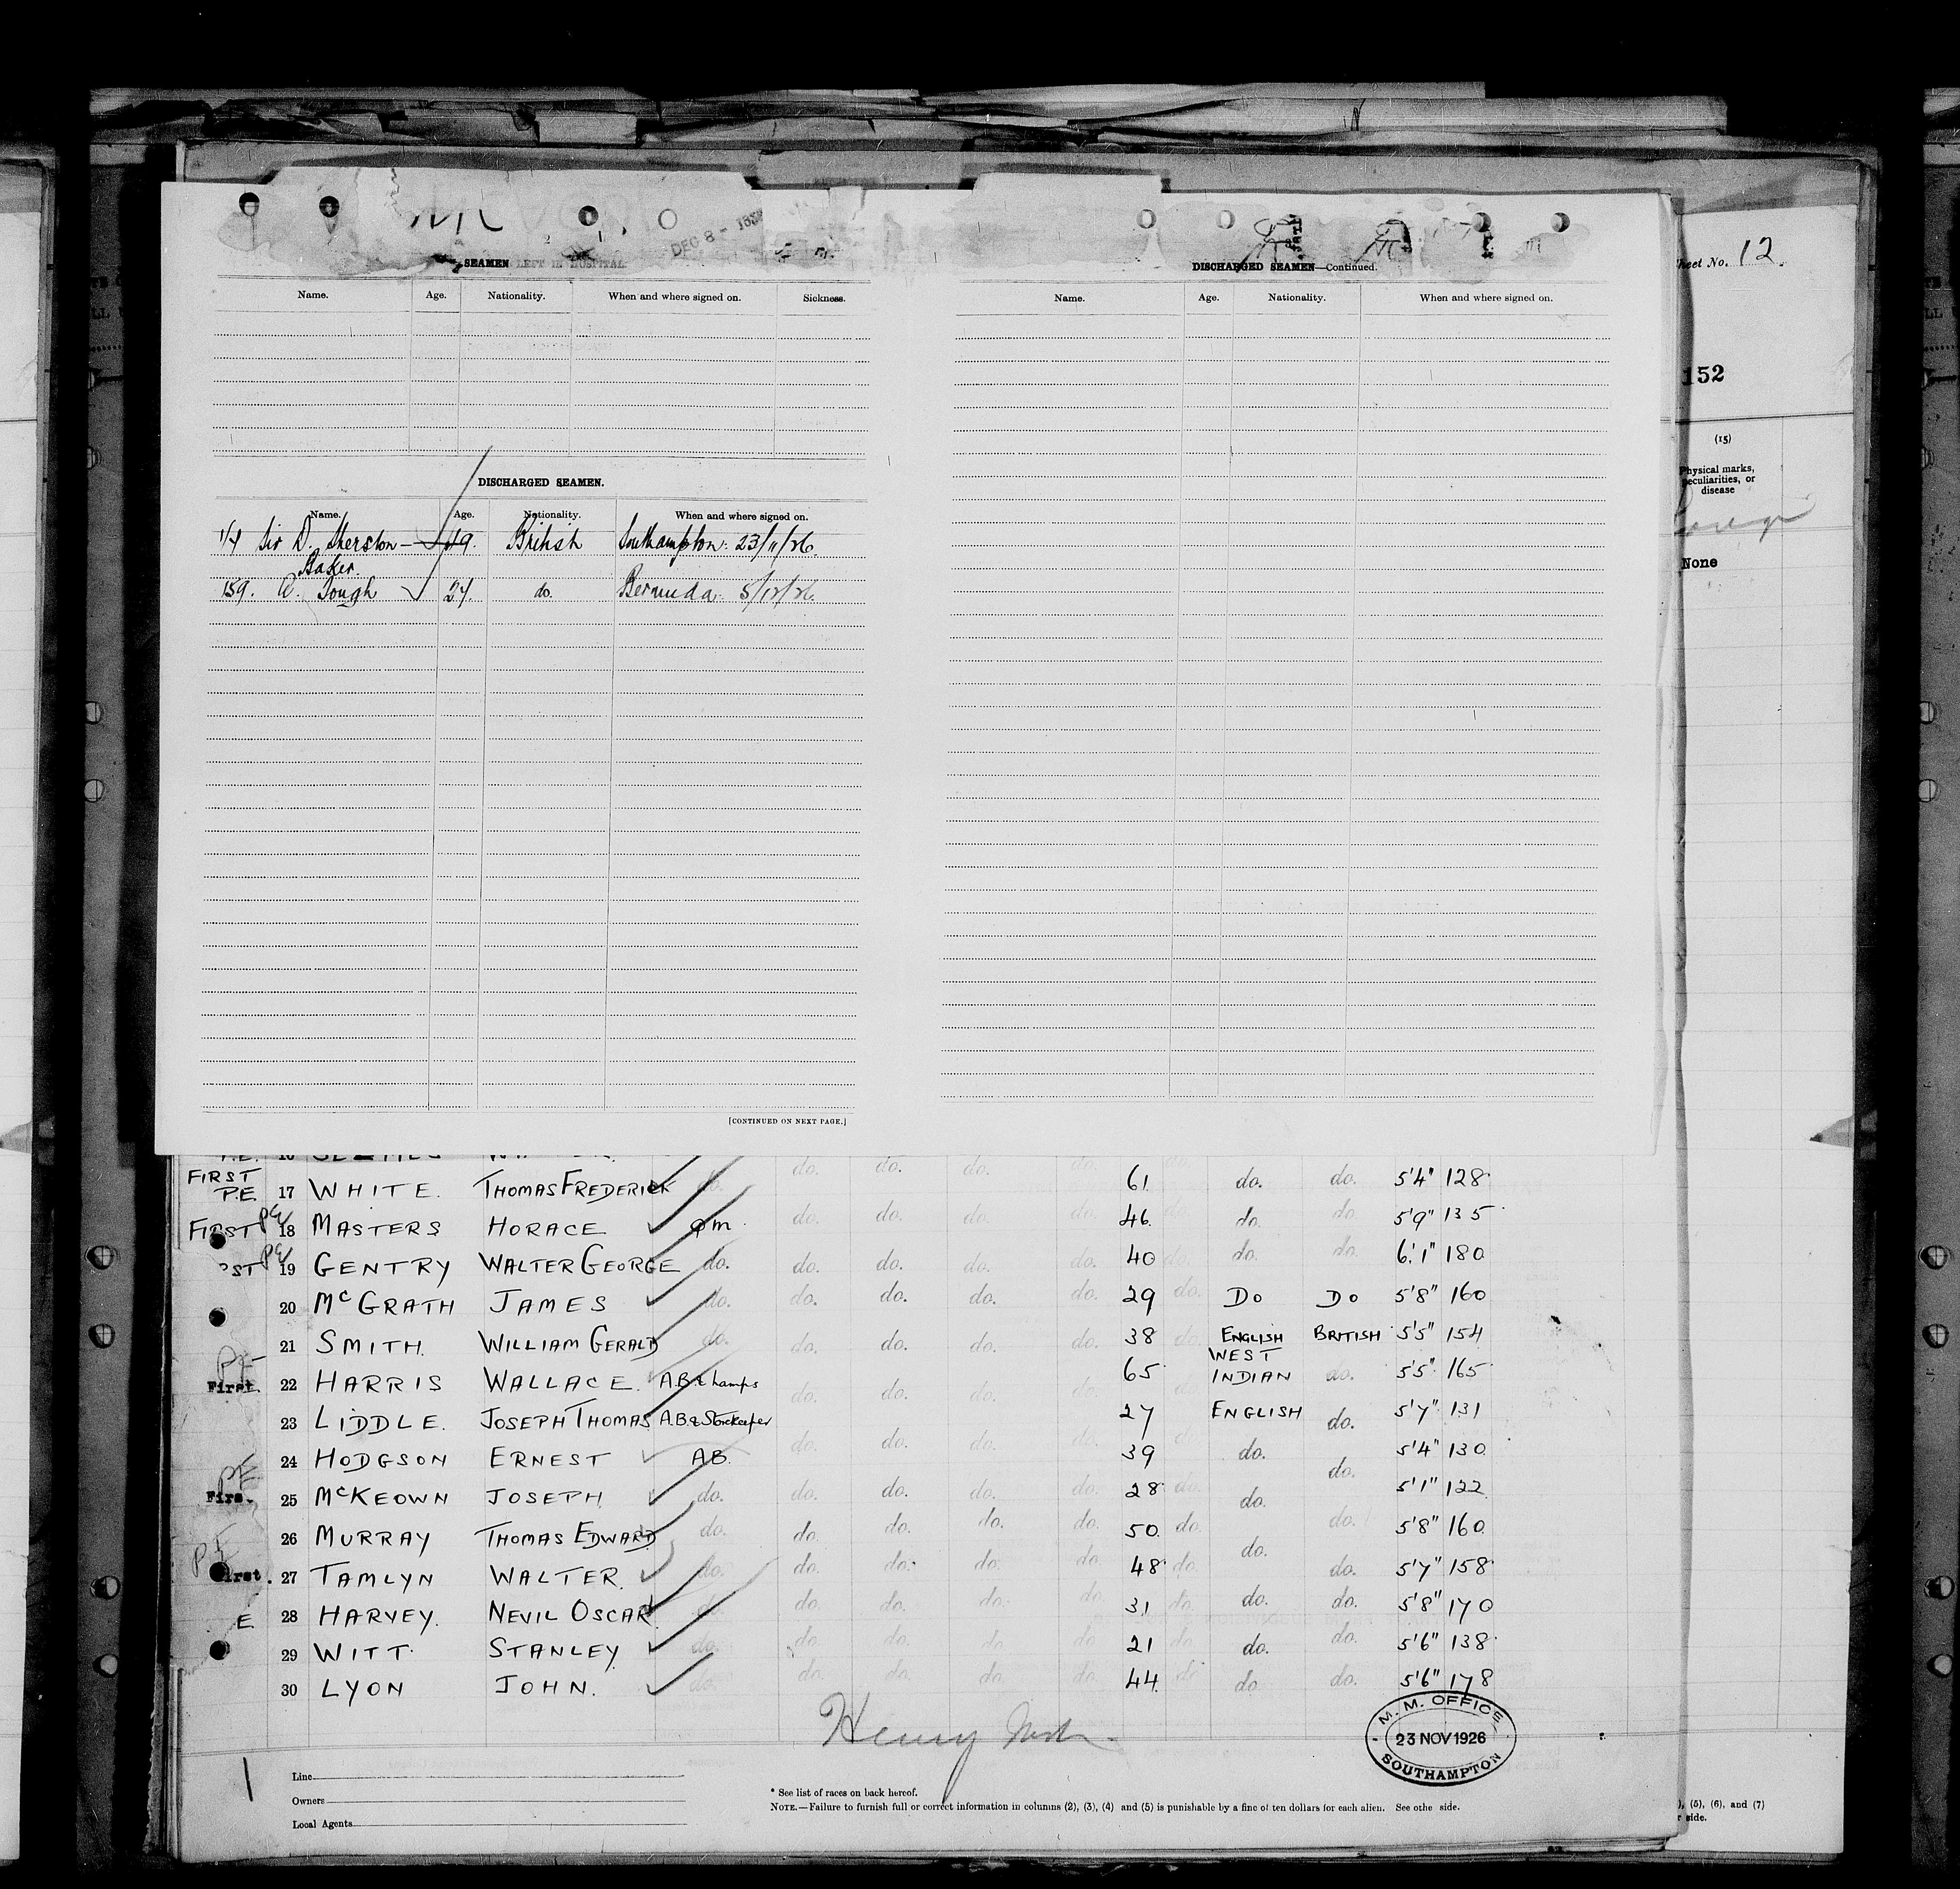 DEC 8 - 192
SEAMEN LEFT IN HOSPITAL
Name. Age. Nationality. When and where signed on. Sickness.
DISCHARGED SEAMEN.
Name. Age. Nationality. When and where signed on.
Sir D. Sherston- 19. British Southampton: 23/11/26.
Baker.
159. Tough 24. do. Bermuda 5/12/26.
[CONTINUED ON NEXT PAGE.]
DISCHARGED SEAMEN—Continued.
Name. Age. Nationality. When and where signed on.
heet No. 12.
152
(15)
Physical marks,
peculiarities, or
disease
None
FIRST
P.E. 17 WHITE. THOMAS FREDERICK do. do. do. do. do. 61 do. do. 5'4" 128
FIRST PE 18 MASTERS HORACE Q.M. do. do. do. do. 46. do. do. 5'9" 135
ST PE 19 GENTRY WALTER GEORGE do. do. do. do. do. 40 do. do. do. 6'1" 180
20 McGRATH JAMES do. do. do. do. do. 29 do. DO DO 5'8" 160
21 SMITH. WILLIAM GERALD do. do. do. do. do. 38 do. ENGLISH BRITISH 5'5" 154
PE
First. 22 HARRIS WALLACE. A.B. & Lamps do. do. do. do. 65 WEST INDIAN do. 5'5" 165
23 LIDDLE. JOSEPH THOMAS A.B. & Storekeeper do. do. do. do. 27 do. ENGLISH do. 5'7" 131
24 HODGSON ERNEST AB. do. do. do. do. 39 do. do. do. 5'4" 130
PE
Firs. 25 McKEOWN JOSEPH do. do. do. do. do. 28 do. do. 5'1" 122
26 MURRAY THOMAS EDWARD do. do. do. do. do. 50. do. do. do. 5'8" 160
PE
irst. 27 TAMLYN WALTER. do. do. do. do. do. 48 do. do. 5'7" 158
E 28 HARVEY. NEVIL OSCAR do. do. do. do. do. 31 do. do. do. 5'8" 170
29 WITT. STANLEY do. do. do. do. do. 21 do. do. do. 5'6" 138
30 LYON JOHN. do. do. do. do. 44. do. do. do. 5'6" 178
Henry
M. M. OFFICE
23 NOV 1926
SOUTHAMPTON
Line
Owners
Local Agents
* See list of races on back hereof.
NOTE.—Failure to furnish full or correct information in columns (2), (3), (4) and (5) is punishable by a fine of ten dollars for each alien. See othe side.
), (5), (6), and (7)
r side.